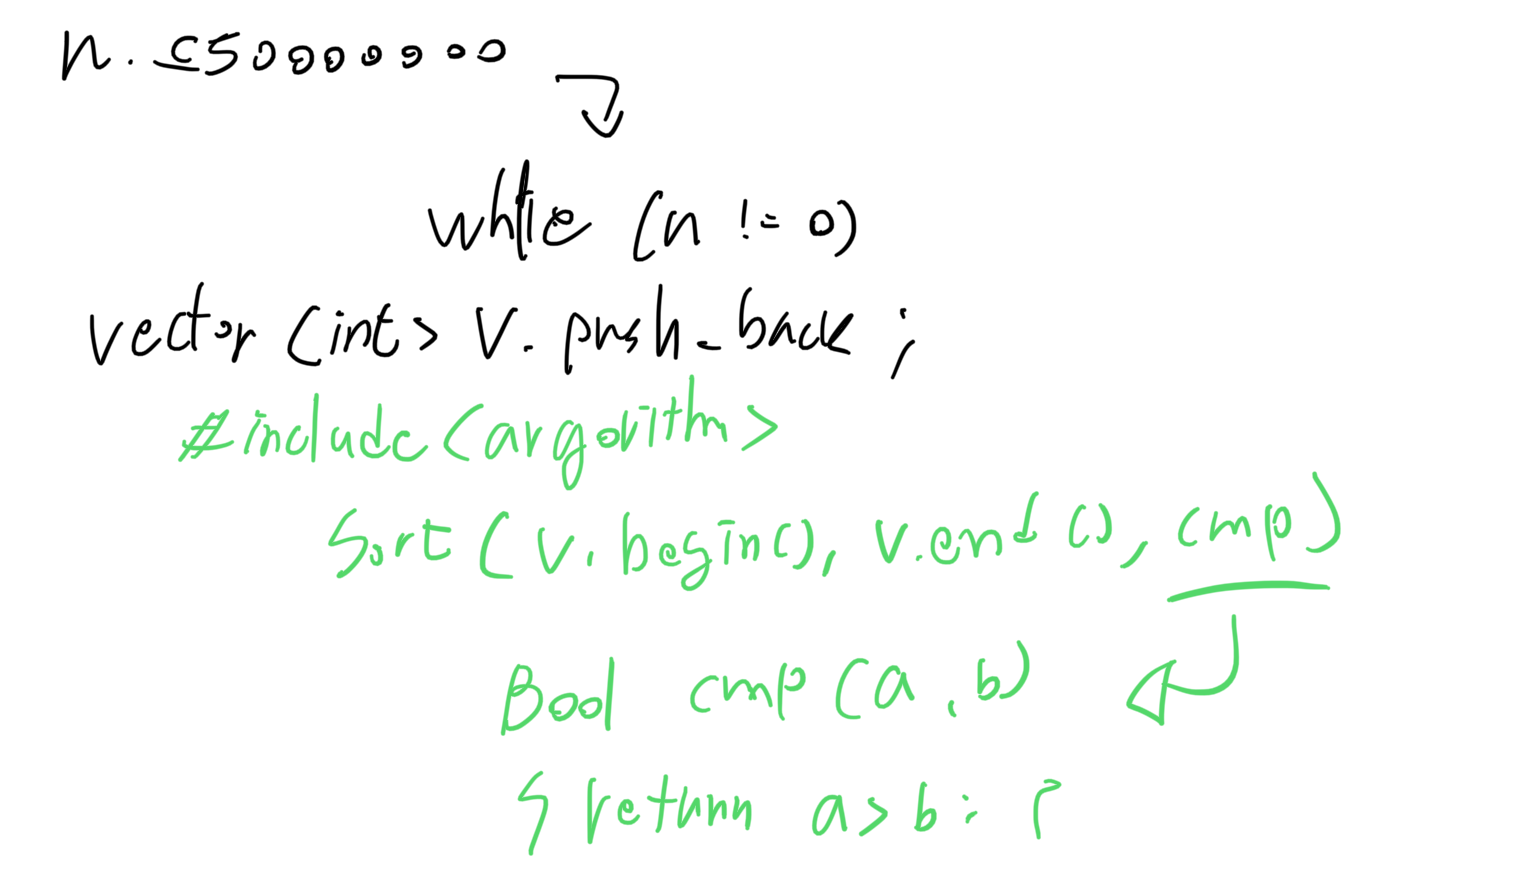 n. ≤50000000
while (n != 0)
vector <int> v. push_back ;
#include <argorithm>
Sort ( v. begin(), v.end (), cmp)
Bool cmp (a , b)
{ return a>b ; }